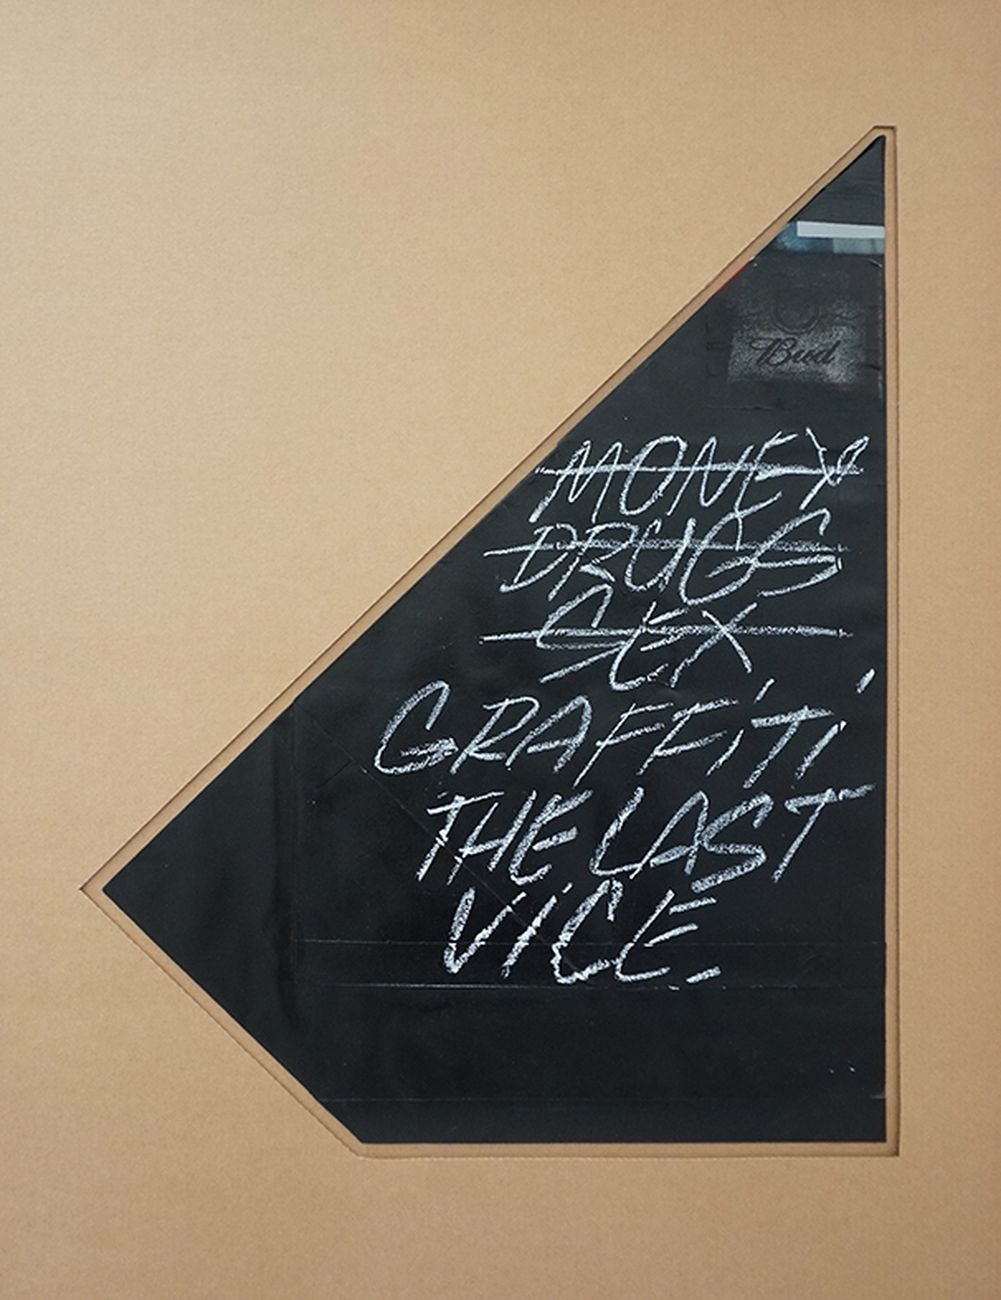 Bud
MONEY
DRUGS
SEX
GRAFFITI
THE LAST
VICE.